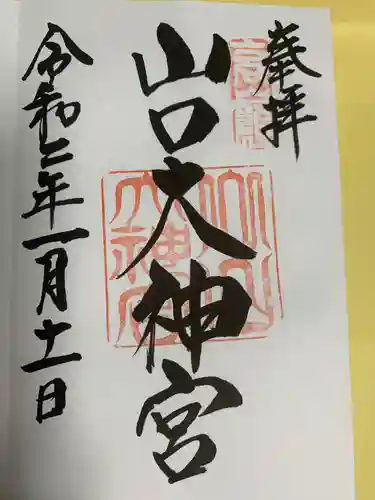 奉拝
山口大神宮
令和二年一月十一日